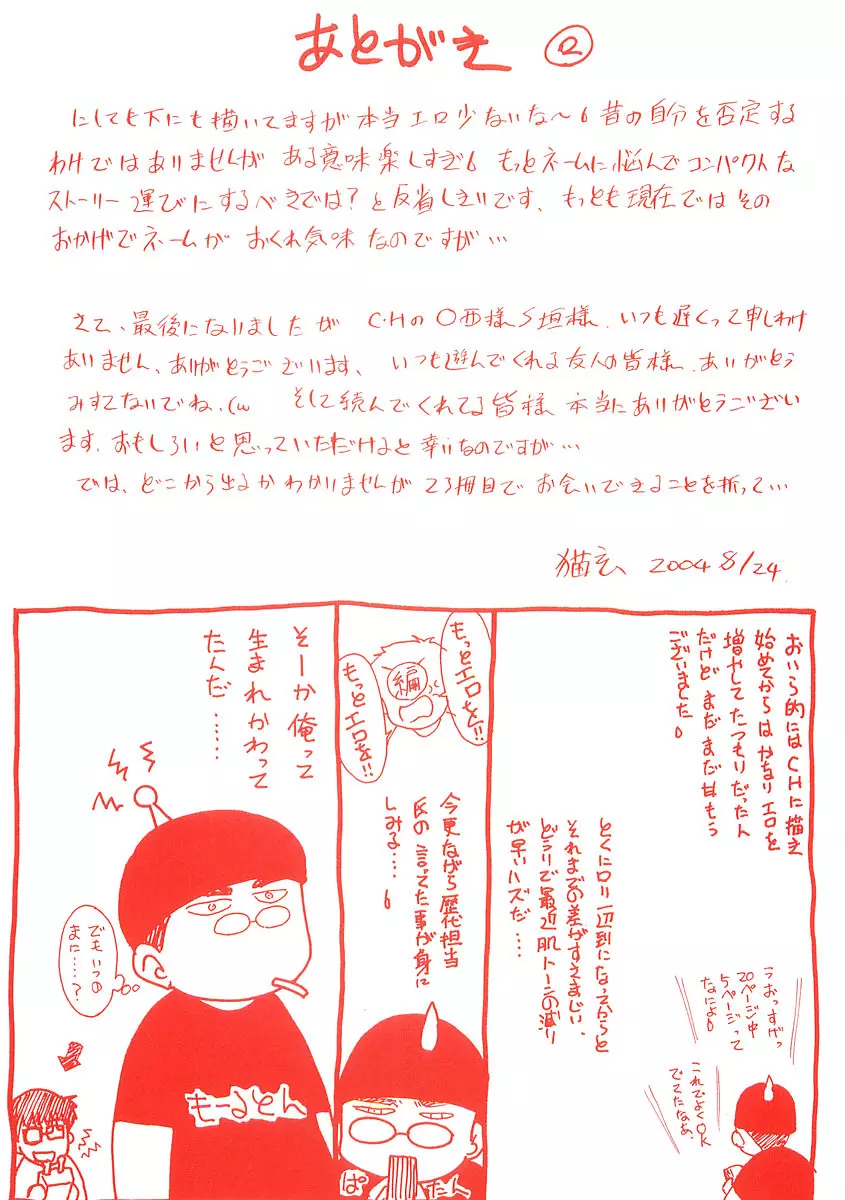 あとがき ②
にしても下にも描いてますが本当エロ少ないな〜 昔の自分を否定する
わけではありませんが ある意味楽しすぎ もっとネームに悩んでコンパクトな
ストーリー運びにするべきでは？と反省しきりです、もっとも現在ではその
おかげでネームが おくれ気味なのですが…
さて、最後になりましたが C・Hの〇西様S垣様、いつも遅くって申しわけ
ありません、ありがとうございます、いつも遊んでくれる友人の皆様、ありがとう
みすてないでね、(ω そして読んでくれてる皆様 本当にありがとうござい
ます、おもしろいと思っていただけると幸いなのですが…
では、どこから出るかわかりませんが 23冊目で お会いできることを祈って…
猫玄 2004 8/24
おいら的にはCHに描き
始めてからはかなりエロを
増やしてたつもりだったん
だけど まだまだ甘もう
ございました
うおっすげっ
20ページ中
5ページって
なによ
これでよくOK
でてたなあ、
とくにロリ一辺到になってからと
それまでの差がすさまじい、
どうりで最近肌トーンの減り
が早いハズだ…
もっとエロを!!
編
もっとエロを!!
今更ながら歴代担当
氏の言ってた事が身に
しみる……
ぱたん
そーか俺って
生まれかわって
たんだ……
でもいつの
まに……？
もーるとん